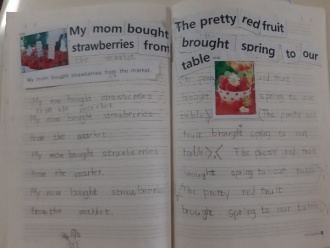 My mom bought
strawberries from
My mom bought strawberries from the market.
My mom bought strawberries
from the market.
My mom bought strawberries
from the market.
My mom bought strawberries
from the market.
My mom bought strawberries
from the market.
The pretty red fruit
brought spring to our
table.
The pretty red fruit
brought spring to our
table. The pretty red
fruit brought spring to our
table. The pretty red fruit
brought spring to our table.
The pretty red fruit
brought spring to our table.